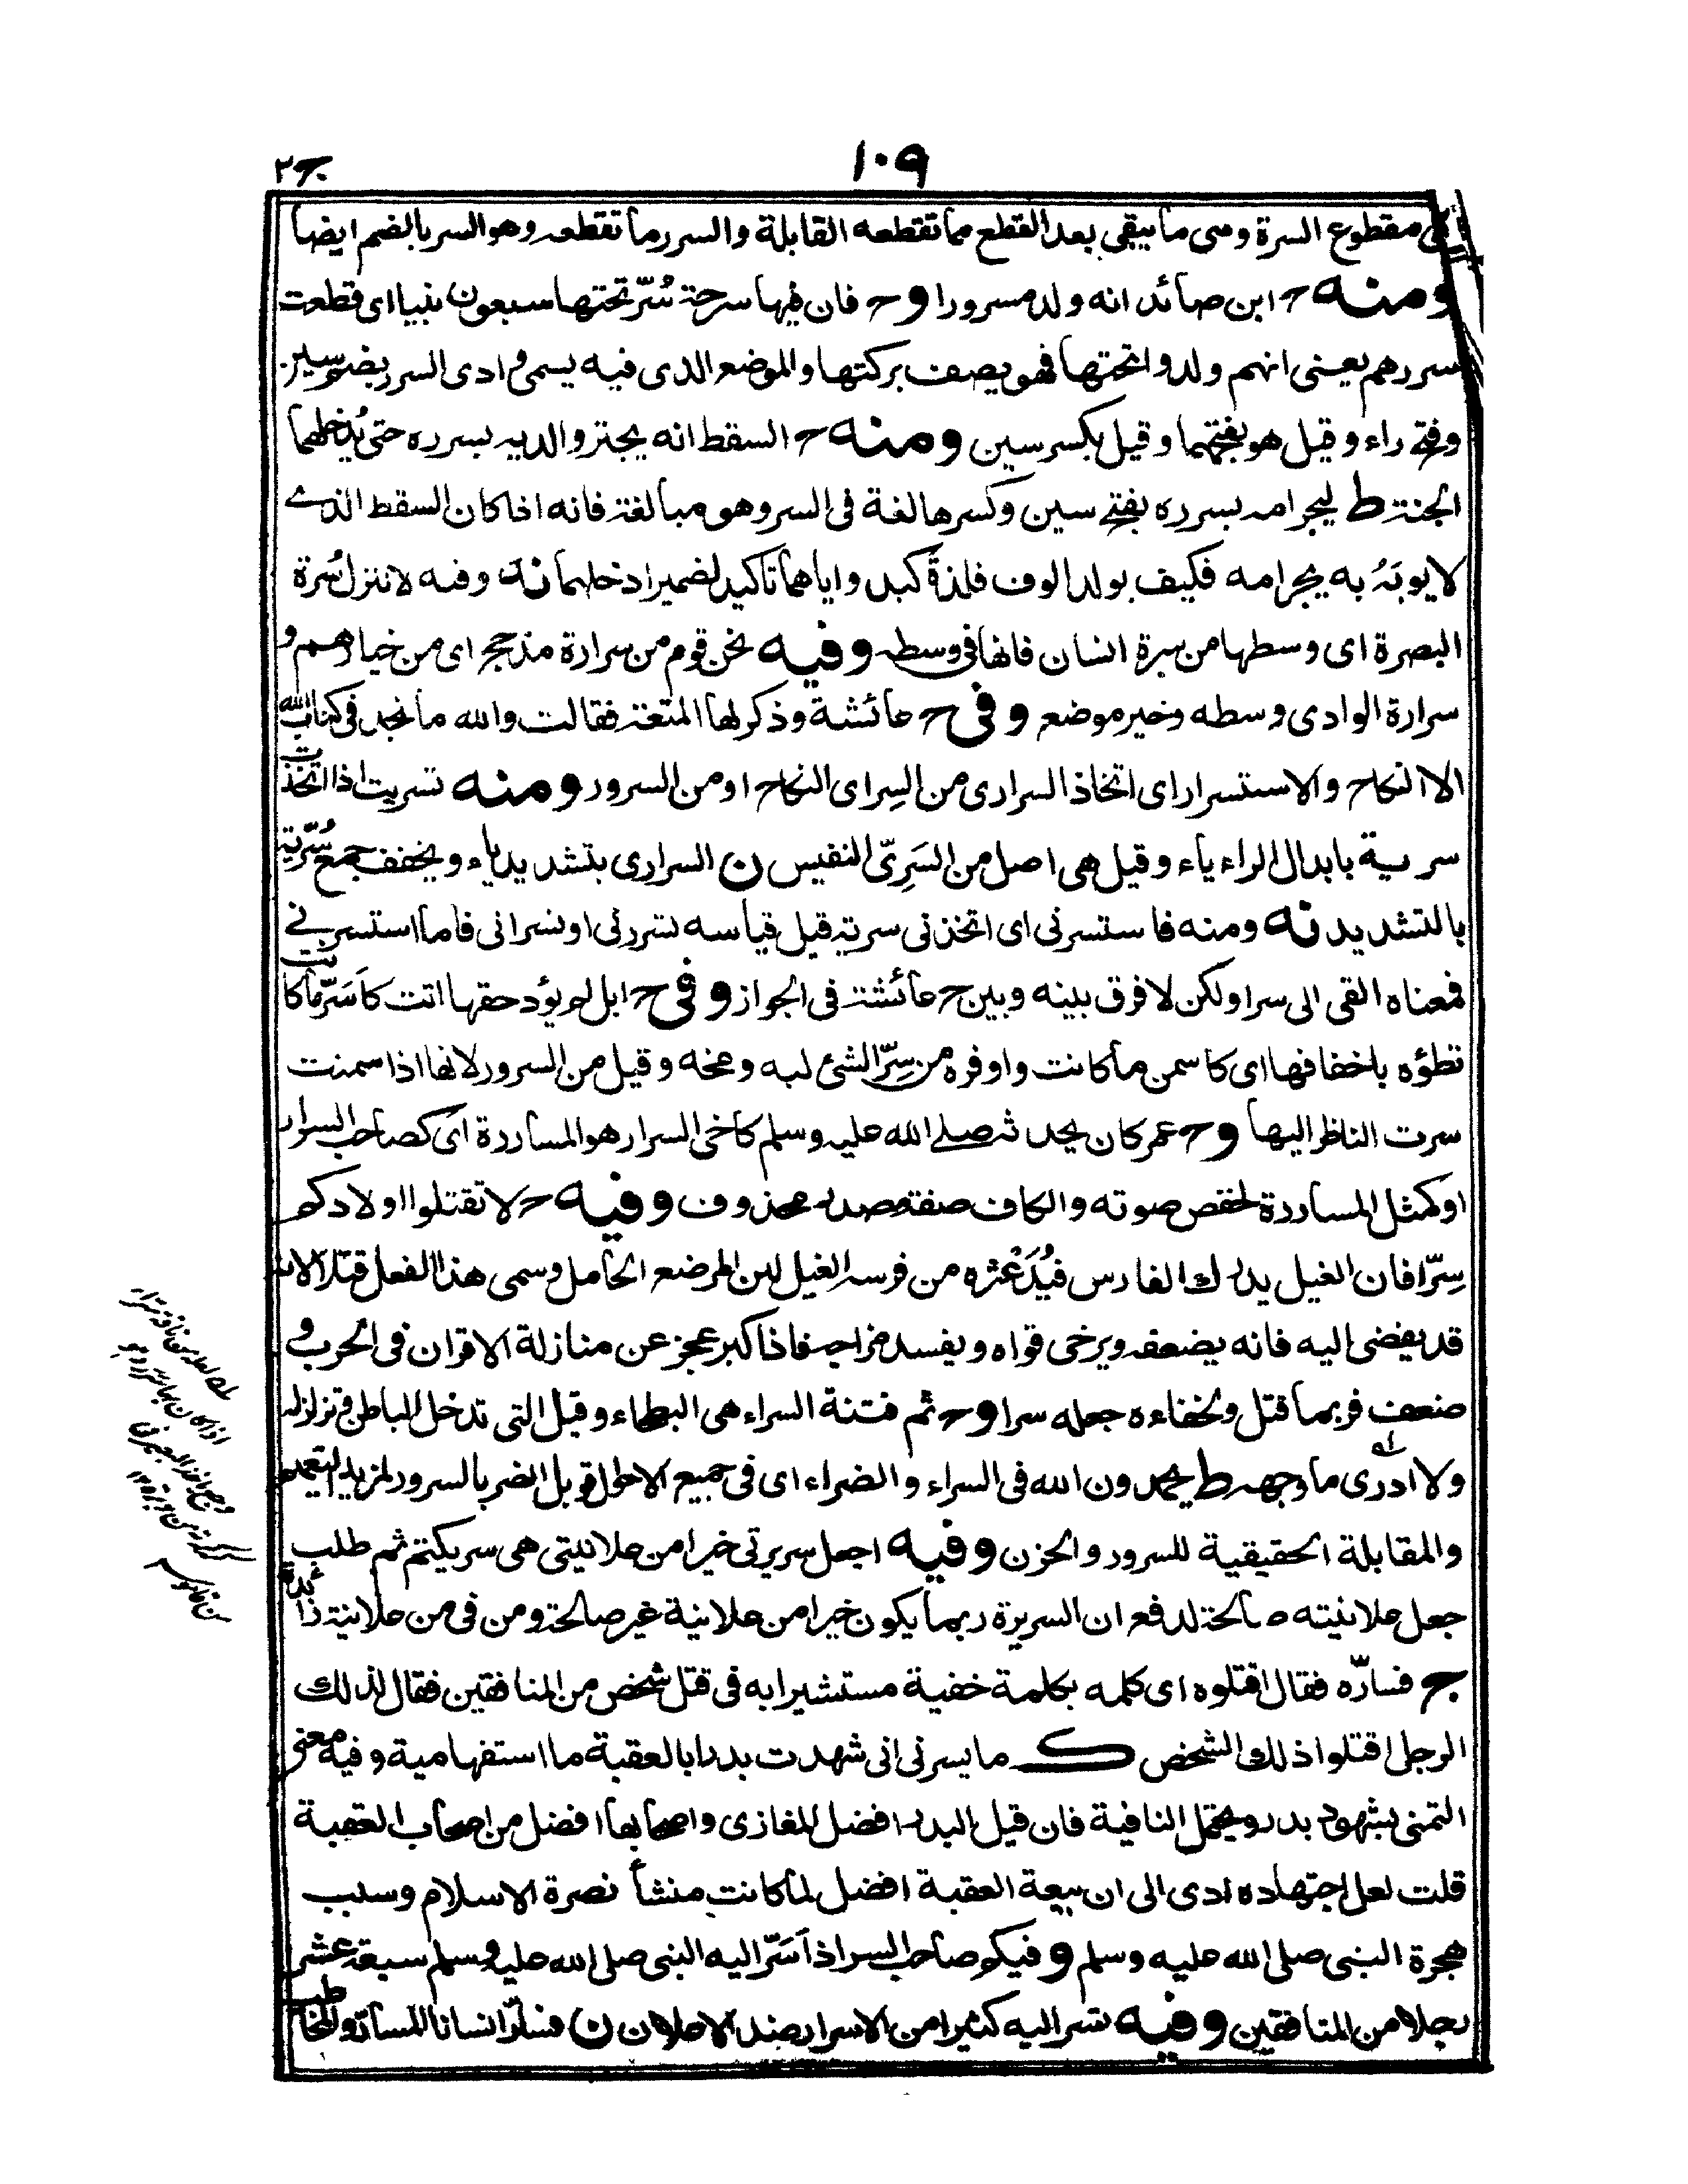 ١٠٩
ج٢
اى مقطوع السرة وهى ما يبقى بعد القطع مما تقطعه القابلة والسرر ما تقطعه وهو السر بالضم ايضا
ومنه ح ابن صائد انه ولد مسرورا وح فان فيها سرحة سُرّ تحتها سبعون نبيا اى قطعت
سررهم يعنى انهم ولدوا تحتها فهو يصف بركتها والموضع الذى فيه يسمى وادى السرر بضم سين
وفتح راء وقيل هو بفتحهما وقيل بكسر سين ومنه ح السقط انه يجتر والديه بسرره حتى يُدخلهما
الجنة ط ليجر امه بسرره بفتح سين وكسرها لغة فى السر وهو مبالغة فانه اذا كان السقط الذے
لا يوبَهُ به يجر امه فكيف بولد الوف فلذة كبد واياهما تاكيد لضمير ادخلهما نه وفيه لا تنزل سُرة
البصرة اى وسطها من سرة انسان فانها فى وسطه وفيه نحن قوم من سرارة مذحج اى من خيارهم و
سرارة الوادى وسطه وخير موضع وفى ح عائشة وذكر لها المتعة فقالت والله ما نجد فى كتاب الله
الا النكاح والاستسرار اى اتخاذ السرارى من السِر اى النكاح او من السرور ومنه تسريت اذا اتخذت
سرية بابدال الراء ياء وقيل هى اصل من السَرِىّ النفيس ن السرارى بتشديد ياء ويخفف جمع سُرّية
بالتشديد نه ومنه فاستسرنى اى اتخذنى سرية قيل قياسه تسررنى او تسرانى فاما استسرنے
فمعناه القى الى سرا ولكن لا فرق بينه وبين ح عائشة فى الجواز وفى ح ابل لم يؤد حقها اتت كاَسَرّ ما كانت
تطؤه باخفافها اى كاسمن ما كانت واوفره من سِرّ الشئ لبه ومخه وقيل من السرور لانها اذا سمنت
سرت الناظر اليها وح عمر كان يحدثه صلى الله عليه وسلم كاخى السرار هو المساررة اى كصاحب السرار
او كمثل المساررة لخفض صوته والكاف صفة مصدر محذوف وفيه ح لا تقتلوا اولادكم
سِرّا فان الغيل يدرك الفارس فيُدَعْثره من فرسه الغيل لبن المرضع الحامل وسمى هذا الفعل قتلا لانه
قد يفضى اليه فانه يضعفه ويرخى قواه ويفسد مزاجه فاذا كبر عجز عن منازلة الاقران فى الحرب و
ضعف فربما قتل ولخفاءه جعله سرا وح ثم فتنة السراء هى البطحاء وقيل التى تدخل الباطن وتزلزله
ولا ادرى ما وجهه ط يحمدون الله فى السراء والضراء اى فى جميع الاحوال قوبل الضر بالسرور لمزيد التعميم
والمقابلة الحقيقية للسرور والحزن وفيه اجعل سريرتى خيرا من علانيتى هى سر يكتم ثم طلب
جعل علانيته صالحة لدفع ان السريرة ربما يكون خيرا من علانية غير صالحة ومن فى من علانية زائدة
ج فسارّه فقال اقتلوه اى كلمه بكلمة خفية مستشيرا به فى قتل شخص من المنافقين فقال لذلك
الرجل اقتلوا ذلك الشخص ك ما يسرنى انى شهدت بدرا بالعقبة ما استفهامية وفيه معنى
التمنى بشهود بدر ويحتمل النافية فان قيل البدر افضل المغازى واصحابها افضل من اصحاب العقبة
قلت لعل اجتهاده ادى الى ان بيعة العقبة افضل لما كانت منشأ نصرة الاسلام وسبب
هجرة النبى صلى الله عليه وسلم و فيكم صاحب السر اذ اَسَرّ اليه النبى صلى الله عليه وسلم سبعة عشر
رجلا من المنافقين وفيه تسر اليه كثيرا من الاسرار ضد الاعلان ن فسارّ انسانا المسارّ والمخاطب